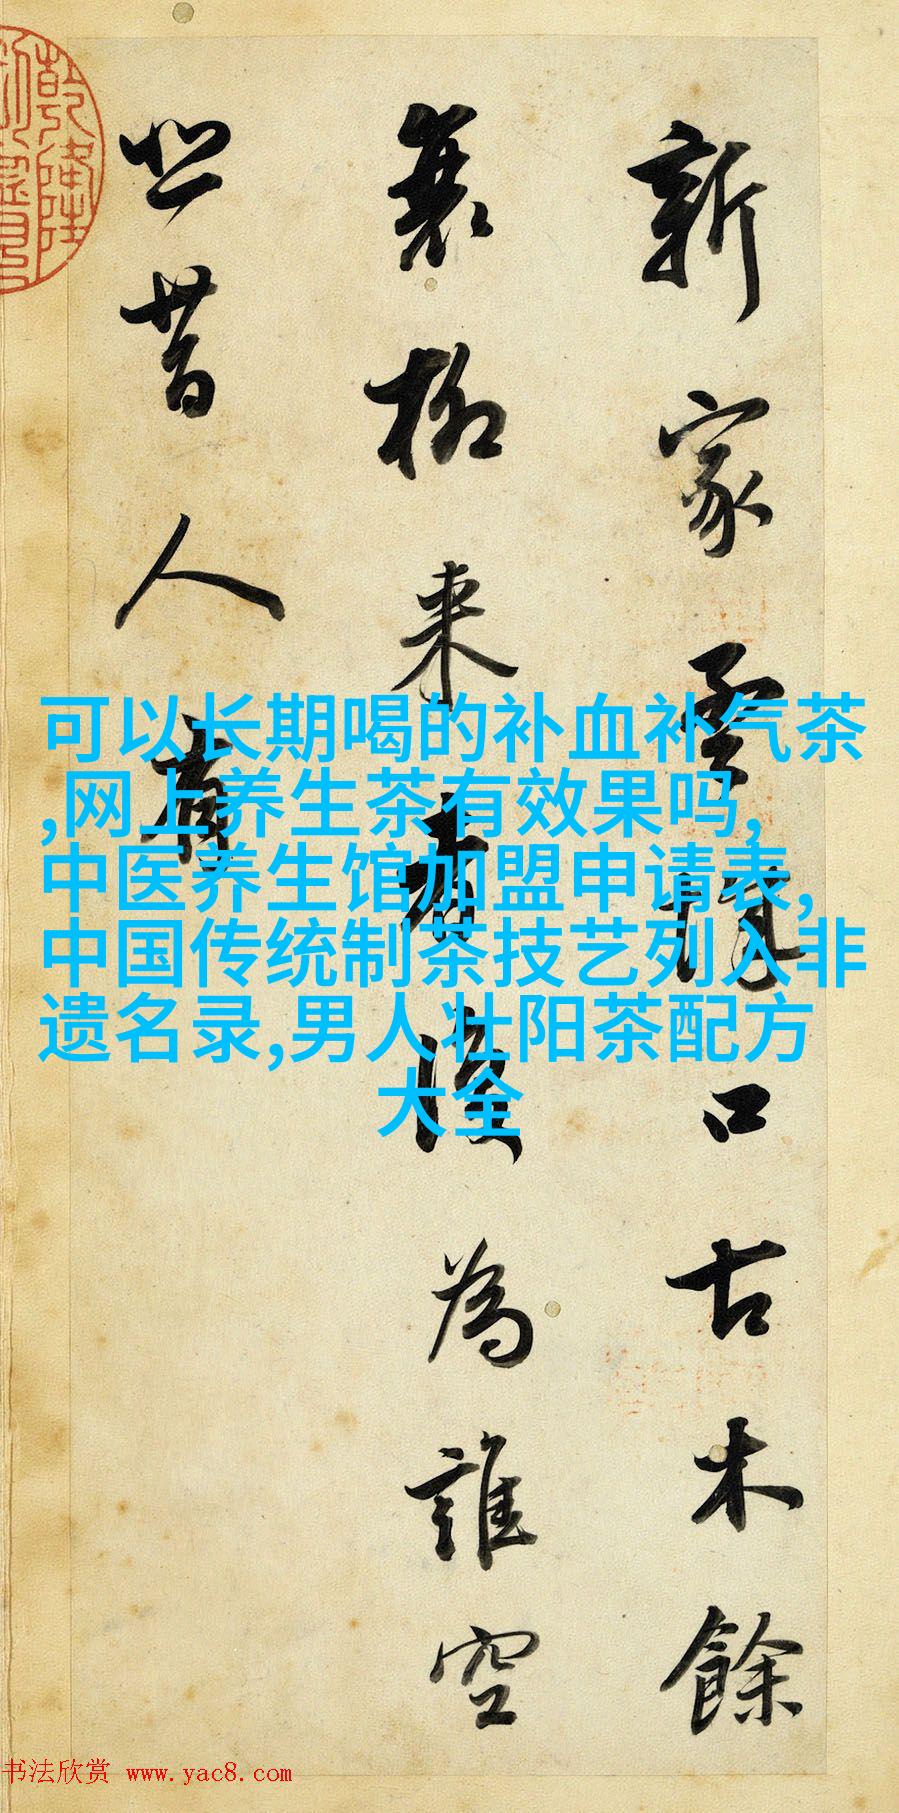 新家孟城口古木餘
衰柳来者復為誰空
悲昔人有
可以长期喝的补血补气茶
,网上养生茶有效果吗,
中医养生馆加盟申请表,
中国传统制茶技艺列入非
遗名录,男人壮阳茶配方
大全
书法欣赏 www.yac8.com